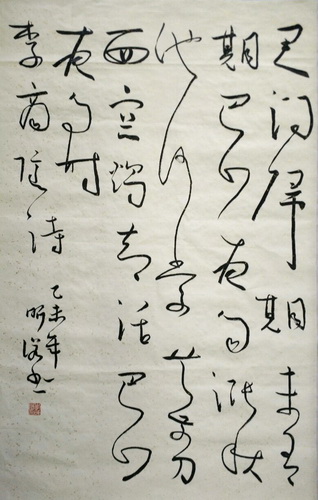 君问归期未有
期巴山夜雨涨秋
池何当共剪
西窗烛却话巴山
夜雨时
李商隐诗
乙未年
昕书